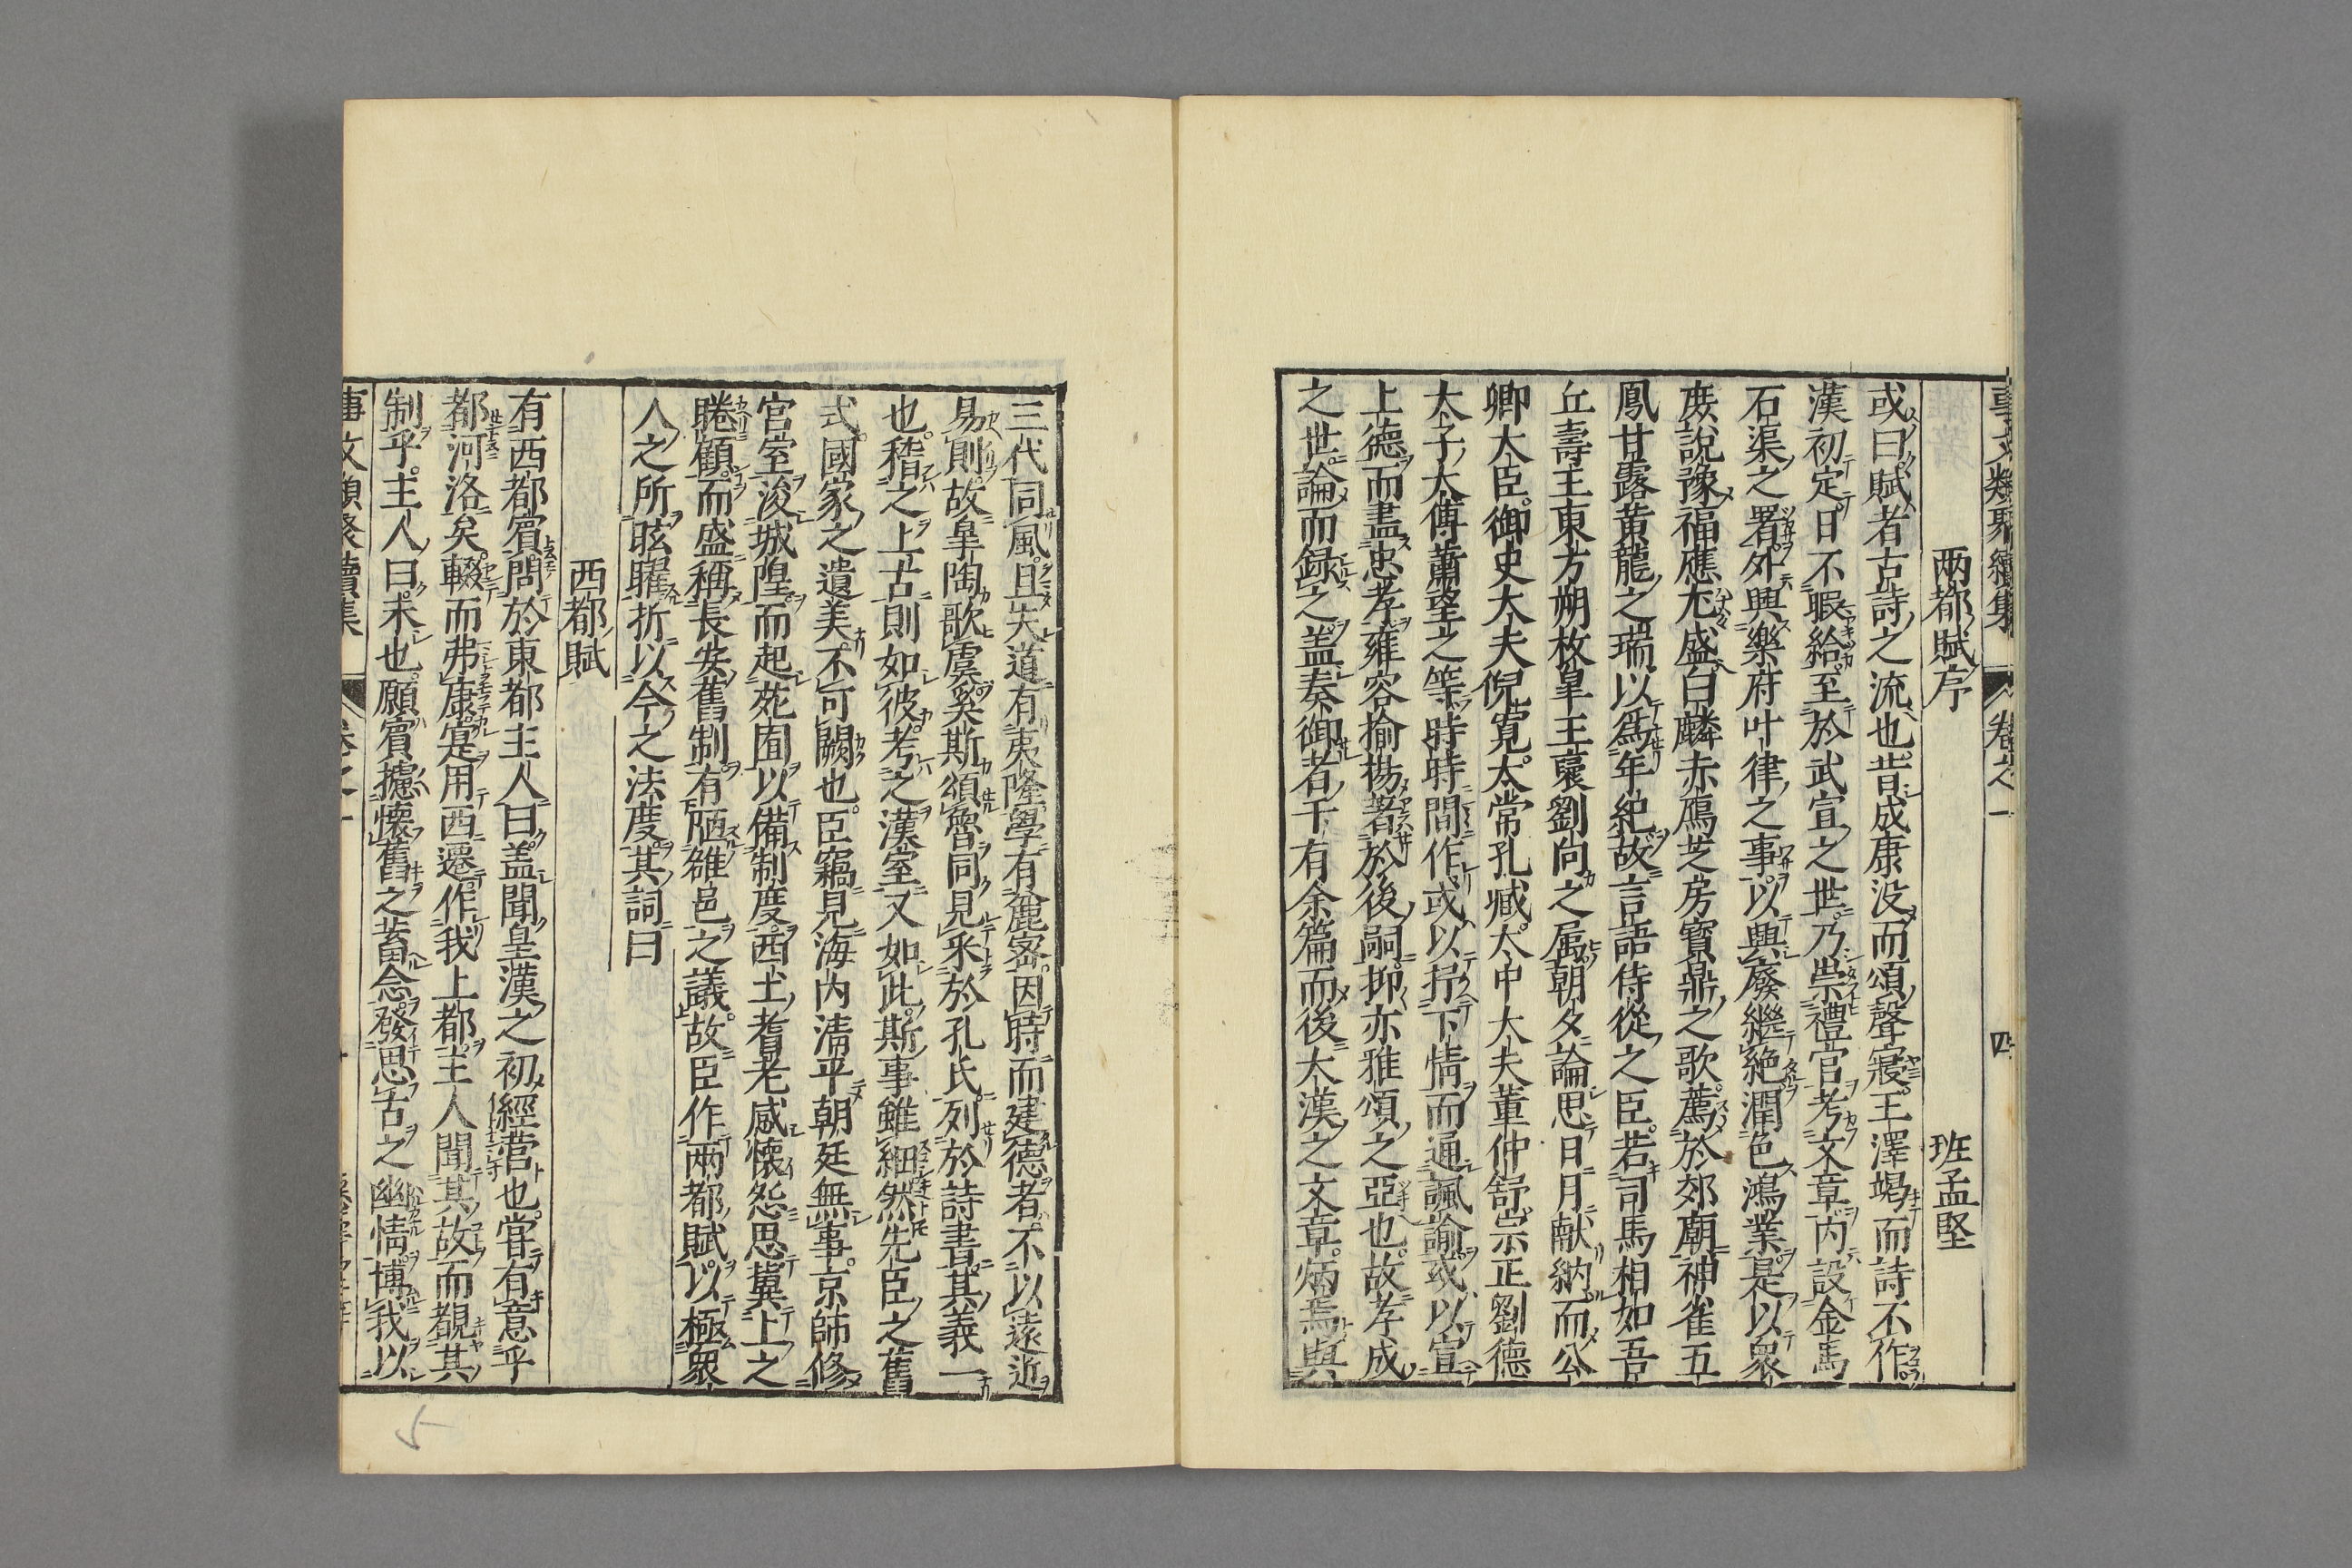 事文類聚續集　卷之一　四
兩都賦序　班孟堅
或曰賦者古詩之流也昔成康没而頌聲寢王澤竭而詩不作
漢初定日不暇給至於武宣之世乃崇禮官考文章内設金馬
石渠之署外興樂府叶律之事以興廢繼絶潤色鴻業是以衆
庶說豫福應尤盛白麟赤鴈芝房寶鼎之歌薦於郊廟神雀五
鳳甘露黄龍之瑞以爲年紀故言語侍從之臣若司馬相如吾
丘壽王東方朔枚皐王襃劉向之屬朝夕論思日月献納而公
卿大臣御史大夫倪寛太常孔臧太中大夫董仲舒宗正劉德
太子太傅蕭望之等時時間作或以抒下情而通諷諭或以宣
上德而盡忠孝雍容揄揚著於後嗣抑亦雅頌之亞也故孝成
之世論而録之盖奏御者千有余篇而後大漢之文章炳焉與
三代同風且夫道有夷隆學有麄宻因時而建德者不以遠近
易則故皐陶歌虞奚斯頌魯同見采於孔氏列於詩書其義一
也稽之上古則如彼考之漢室又如此斯事雖細然先臣之舊
式國家之遺美不可闕也臣竊見海内淸平朝廷無事京師修
宮室浚城隍而起苑囿以備制度西土耆老感懷怨思冀上之
睠顧而盛稱長安舊制有陋雒邑之議故臣作两都賦以極衆
人之所眩曜折以今之法度其詞曰
西都賦
有西都賓問於東都主人曰盖聞皇漢之初經營也甞有意乎
都河洛矣輟而弗康寔用西遷作我上都主人聞其故而覩其
制乎主人曰未也願賓攄懷舊之蓄念發思古之幽情博我以
事文類聚續集　卷之一
5